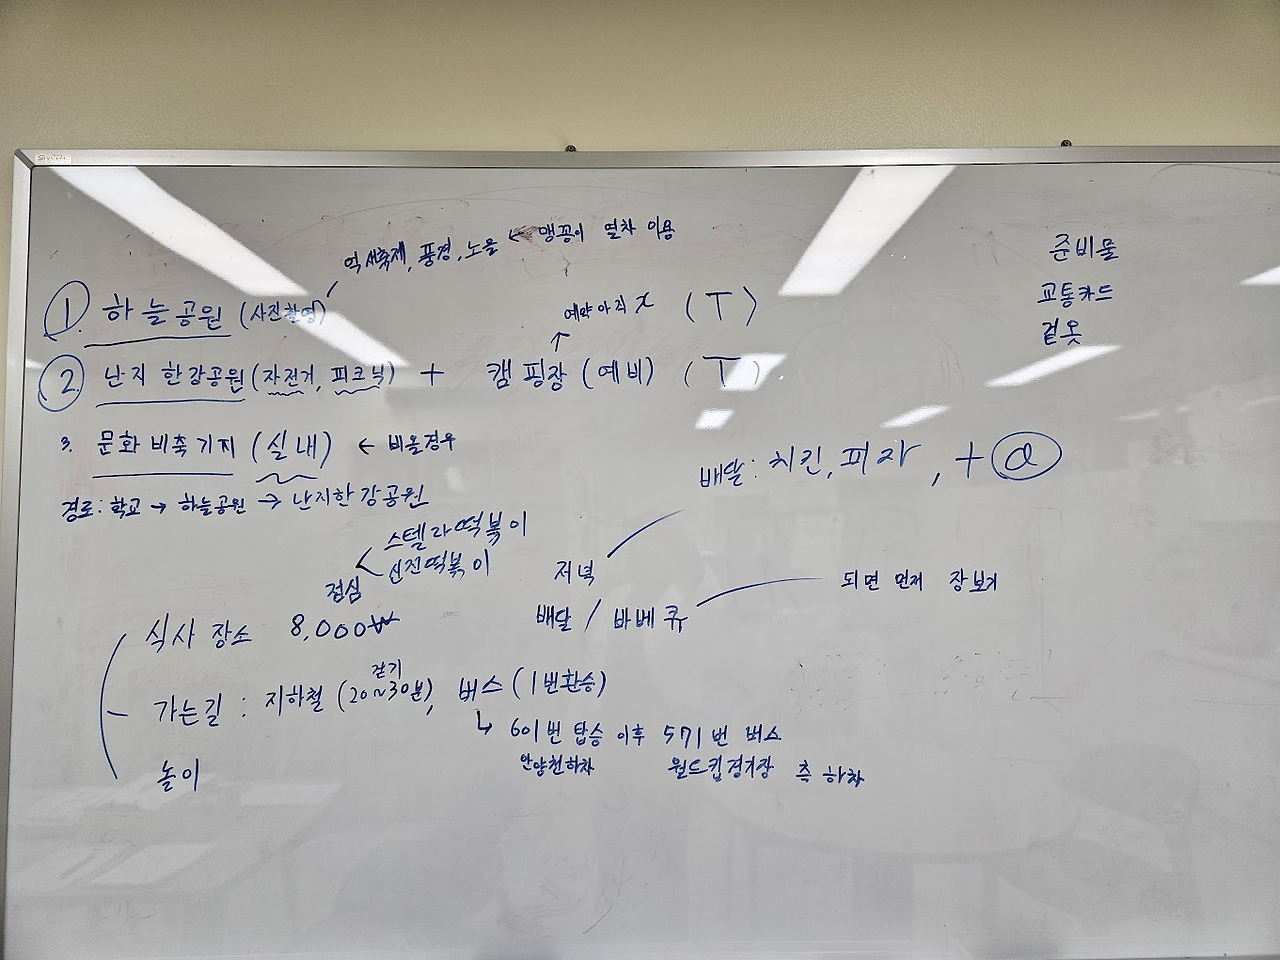 억새축제, 풍경, 노을 ← 맹꽁이 열차 이용
준비물
교통카드
겉옷
1. 하늘공원 (사진촬영)
예약 아직 x (T)
2. 난지 한강공원 (자전거, 피크닉) + 캠핑장 (예비) (T)
3. 문화 비축 기지 (실내) ← 비올경우
배달: 치킨, 피자, + a
경로: 학교 → 하늘공원 → 난지한강공원
스텔라떡볶이
신전떡볶이
점심
저녁
되면 먼저 장보기
식사 장소 8,000₩
배달 / 바베큐
걷기
가는길 : 지하철 (20~30분), 버스 (1번환승)
↳ 601번 탑승 이후 571번 버스
안양천하차 월드컵경기장 측 하차
놀이